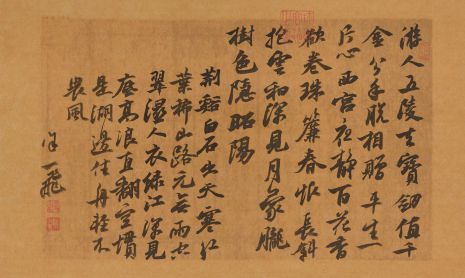 游人五陵去寶劍值千
金分手脫相贈平生一
片心西宮夜靜百花香
欲卷珠簾春恨長斜
抱雲和深見月朦朧
樹色隱昭陽
荊谿白石出天寒紅
葉稀山路元無雨空
翠濕人衣綠江深見
底高浪直翻空慣
是湖邊住舟輕不
畏風
一飛